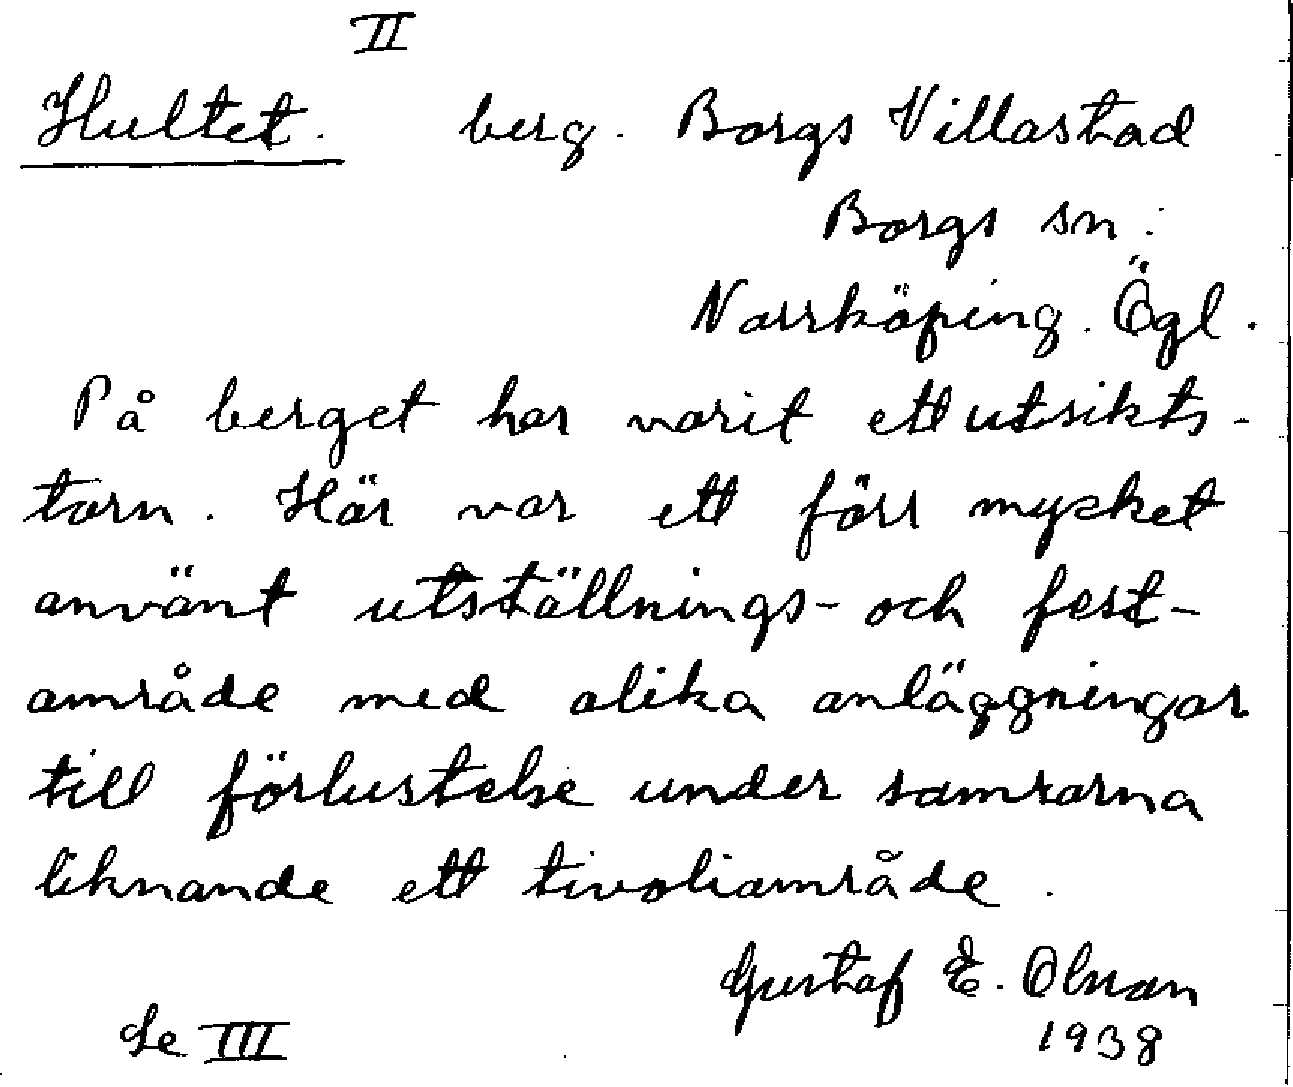 II
Hultet. berg. Borgs Villastad
Borgs sn.
Norrköping. Ögl.
På berget har varit ett utsikts-
torn. Här var ett förr mycket
använt utställnings- och fest-
område med olika anläggningar
till förlustelse under somrarna
liknande ett tivoliområde.
Gustaf E. Olsson
Se III 1938